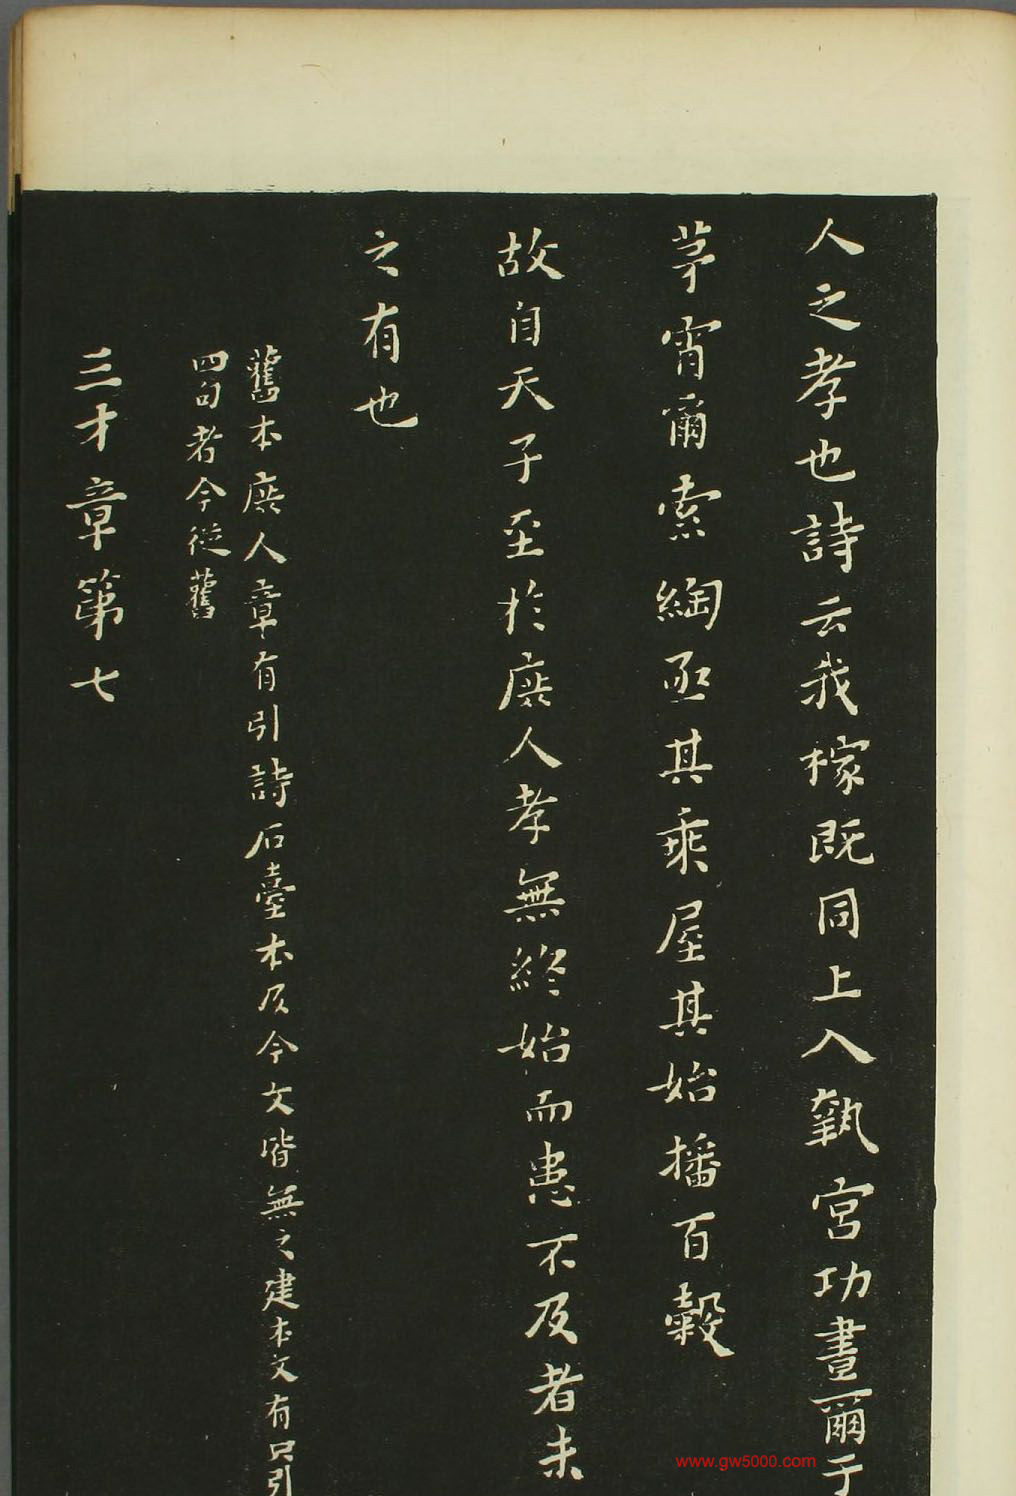 人之孝也詩云我稼既同上入執宮功晝爾于
茅宵爾索綯亟其乘屋其始播百穀
故自天子至於庶人孝無終始而患不及者未
之有也
舊本庶人章有引詩石臺本及今文皆無之建本文有只引
四句者今從舊
三才章第七
www.gw5000.com